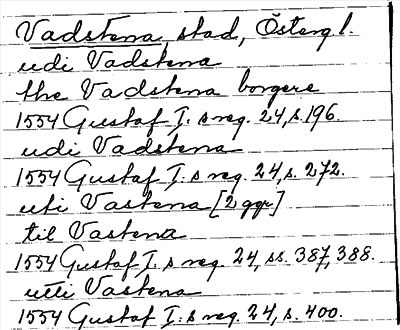 Vadstena stad, Österg l.
udi Vadstena
the Vadstena borgere
1554 Gustaf I:s reg. 24, s. 196.
udi Vadstena
1554 Gustaf I:s reg. 24, s. 272.
uti Vastena [2 ggr]
til Vastena
1554 Gustaf I:s reg 24, ss. 387, 388.
utti Vastena
1554 Gustaf I:s reg. 24, s. 400.